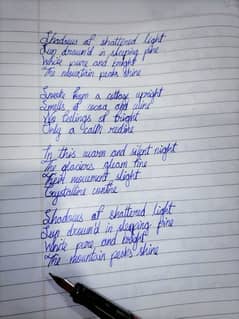 Shadows of shattered light
Sun drown'd in sleeping pine
White pure and bright
The mountain peaks shine
Smoke from a cottage upright
Smells of cocoa and wine
No feelings of fright
Only a calm recline
In this warm and silent night
The glaciers gleam fine
Their movement slight
Crystalline centre
Shadows of shattered light
Sun drown'd in sleeping pine
White pure and bright
The mountain peaks shine